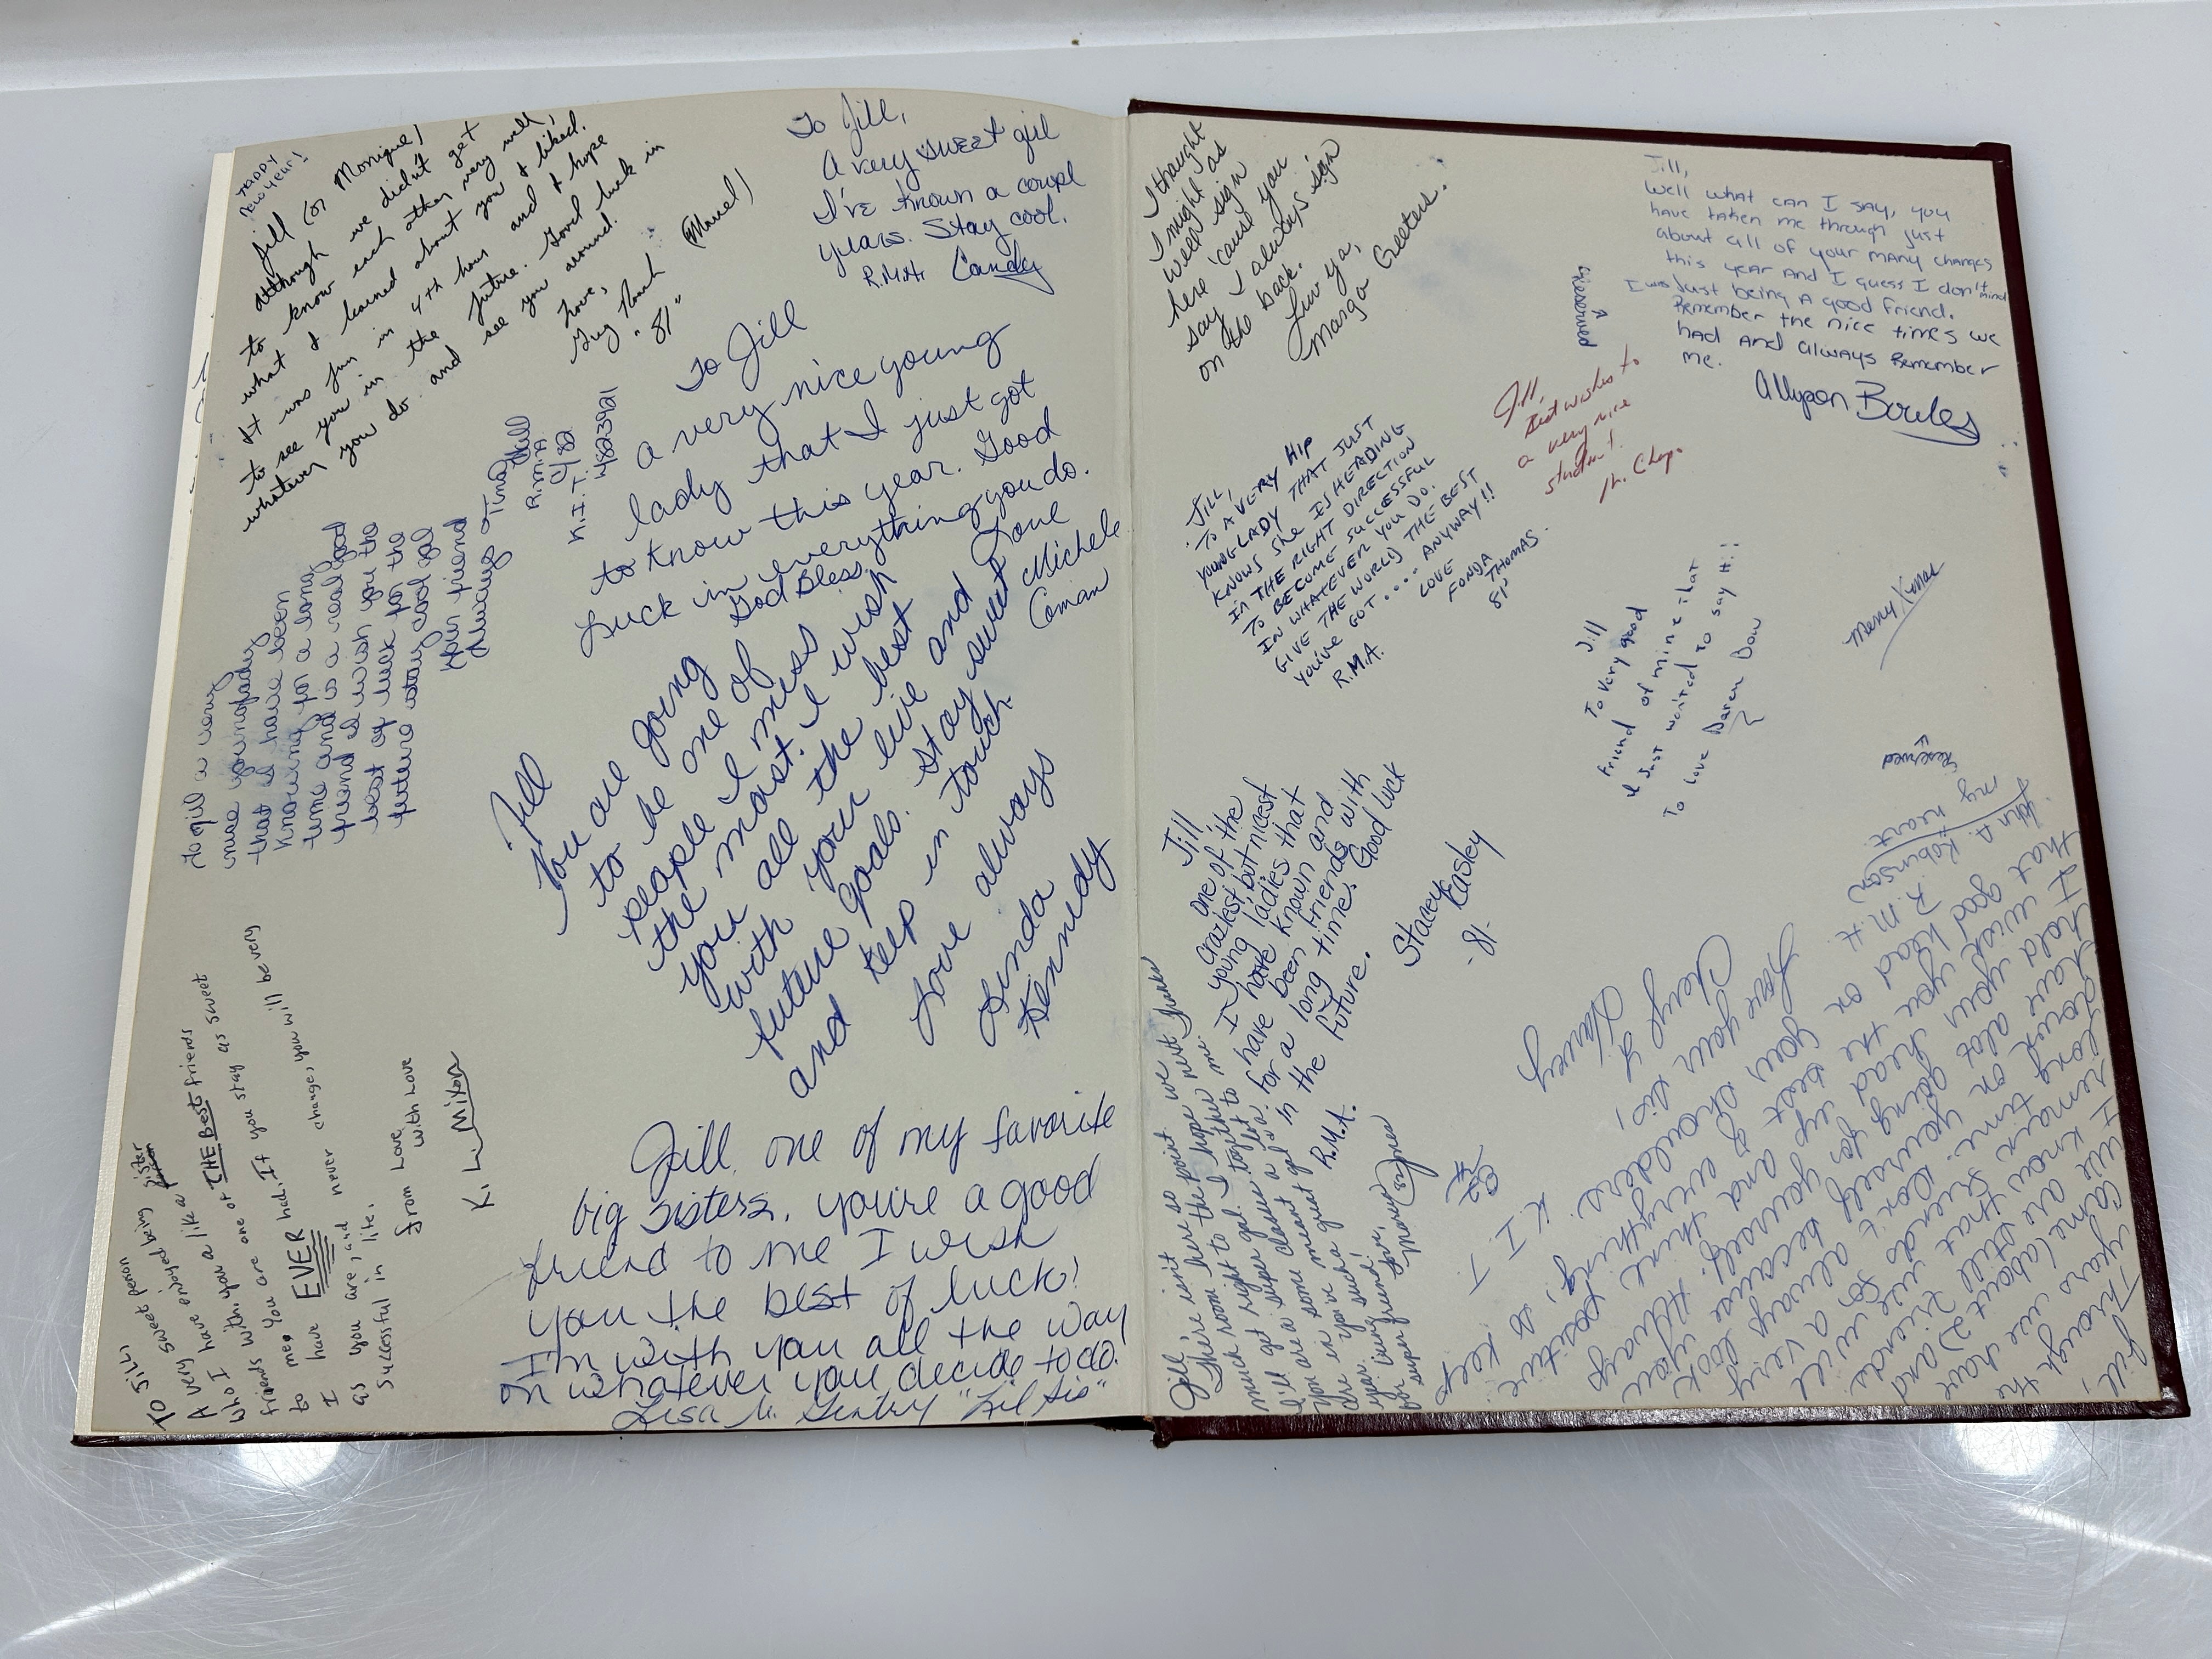 HAPPY
NEW YEAR!
Jill (or Monique)
although we didn't get
to know each other very well,
what I learned about you I liked.
It was fun in 4th hour and I hope
to see you in the future. Good luck in
whatever you do and see you around.
Love,
"81"
To Jill,
A very sweet girl
I've known a coupl
years. Stay cool.
R.M.A. Candy
To Jill
a very nice young
lady that I just got
to know this year. Good
Luck in everything you do.
God Bless.
Love
Michele
Coman
To Jill a very
nice young lady
that I have been
knowing for a long
time and is a real good
friend I wish you the
best of luck for the
future stay cool
Your friend
Always Tina Hill
R.M.A.
K.I.T.
4823921
Jill
You are going
to be one of
people I miss
the most. I wish
you all the best
with your live and
future goals. Stay sweet
and keep in touch
Love always
Linda
Kennedy
TO Jill
A very sweet person
who I have enjoyed being sister
friends with, you a like a
to me, You are one of THE Best friends
I have EVER had. If you stay as sweet
as you are, and never change, you will be very
Successful in life.
From Love
with Love
K. L. Mixon
Jill, one of my favorite
big sisters, you're a good
friend to me I wish
you the best of luck!
I'm with you all the way
on whatever you decide to do.
Lisa M. Gentry "Lil Sis"
I thought
I might as
well sign
here 'cause you
say I always sign
on the back.
Luv ya,
Margo Geeters.
Jill,
Well what can I say, you
have taken me through just
about all of your many changes
this year and I guess I don't mind
I was Just being a good friend.
Remember the nice times we
had and always Remember
me.
Allyson Bowles
Reserved
Jill,
Best wishes to
a very nice
student.
JILL,
TO A VERY HIP
YOUNG LADY THAT JUST
KNOWS SHE IS HEADING
IN THE RIGHT DIRECTION
TO BECOME SUCCESSFUL
IN WHATEVER YOU DO.
GIVE THE WORLD THE BEST
YOU'VE GOT.... ANYWAY!!
LOVE
FONDA
THOMAS.
81'
R.M.A.
Jill
To very good
friend of mine that
I Just wanted to say Hi!!
To Love Daren Dow
Merry Xmas
Reserved
my heart
John A. Robinson
Jill
One of the
craziest but nicest
young ladies that
I have known and
have been friends with
for a long time. Good luck
in the future.
R.M.A.
Stacey
Easley
-81-
Jill,
There isn't so
much room here at this point
I'll get right to the
you are a super gal. I hope we next
are in some classes together
year. you've meant a lot to me.
for being such a great gal
super friend!
Love,
Jill,
Through the
years we have
came (about 2) and
I've know still friends
remain that we will
long time. friends for a very
doubt on yourself. Don't always look
have alot going for you because
I hold your head up and think
that wish you the best of everything, positive
good head on your shoulders. So Keep
R.M.A.
Love your sis,
Cheryl L.
Harvey
K.I.T.
#82